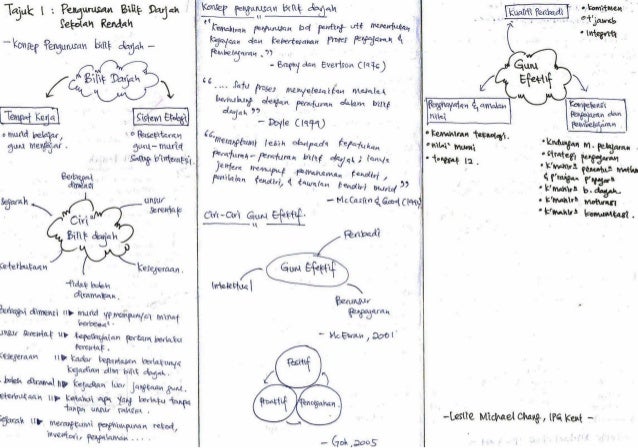 Tajuk 1 : Pengurusan Bilik Darjah
Sekolah Rendah
- Konsep Pengurusan bilik darjah -
Bilik Darjah
Tempat Kerja
• murid belajar,
guru mengajar.
Sistem Ekologi
• Persekitaran
guru - murid
saling berinteraksi.
Berbagai
dimensi
Sejarah
unsur
serentak
Ciri²
Bilik darjah
keterbukaan
kesegeraan.
tidak boleh
diramalkan.
Berbagai dimensi murid yg mempunyai minat
berbeza².
unsur serentak
serentak.
kesegeraan kadar kepantasan berlakunya
kejadian dlm bilik darjah.
boleh diramal kejadian luar jangkaan guru.
keterbukaan ketahui apa yang berlaku tanpa
tanpa unsur rahsia.
Sejarah merangkumi penghimpunan rekod,
inventori, pengalaman ....
Konsep pengurusan bilik darjah
"Kemahiran pengurusan bd penting utk menentukan
kejayaan dan keberkesanan proses pengajaran &
pembelajaran."
- Brophy dan Evertson (1976)
".... satu proses menyelesaikan masalah
berhubung dengan peraturan dalam bilik
darjah"
- Doyle
"merangkumi lebih daripada kepatuhan
peraturan - peraturan bilik darjah; ianya
jentera memupuk pemahaman kendiri,
penilaian kendiri, & kawalan kendiri murid"
- McCaslin & Good
Ciri-Ciri Guru Efektif.
Peribadi
Guru Efektif
Intelektual
Berunsur
pengajaran
- McEwan, 2001
Positif
Proaktif
Pencegahan
- Goh, 2005
Kualiti Peribadi
• komitmen
• t'jawab
• Integriti
Guru
Efektif
Penghayatan & amalan
nilai
• Kemahiran teknologi.
• nilai² murni
Kompetensi
Pengajaran dan
pembelajaran
• Kndungan M. pelajaran
• Strategi pengajaran
• k'mahirn b. darjah
• k'mahirn motivasi
• k'mahirn komunikasi.
- Leslie Michael Chang, IPG Kent -